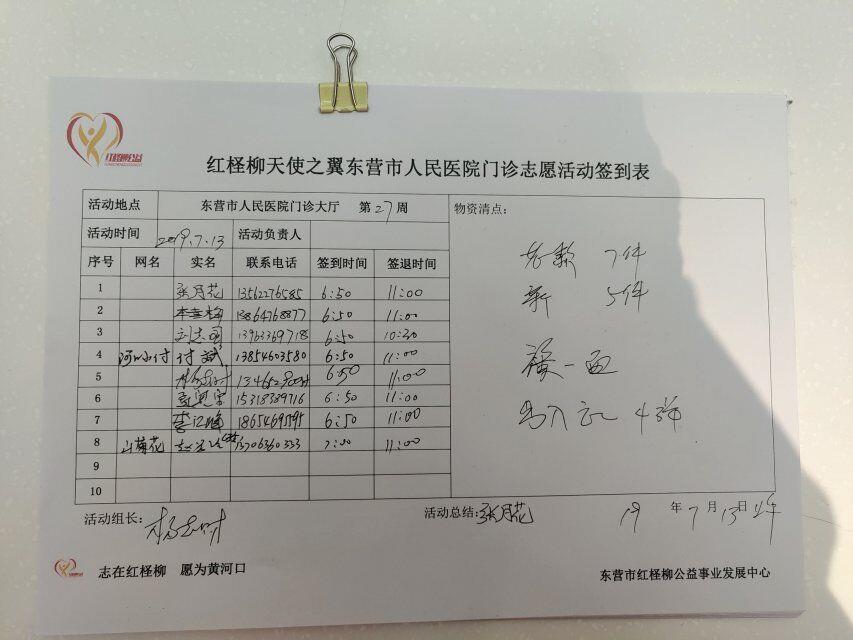 红柽柳公益
红柽柳天使之翼东营市人民医院门诊志愿活动签到表
活动地点 东营市人民医院门诊大厅 第27周 物资清点：
活动时间 2019.7.13 活动负责人
老款 7件
序号 网名 实名 联系电话 签到时间 签退时间
新 5件
1 张月花 13562276585 6:50 11:00
2 13864768877 6:50 11:00
3 13963369718 6:50 10:30
4 河小付 付斌 13854603580 6:50 11:00
旗一面
5 6:50 11:00
6 15318389716 6:50 11:00
出入证 4张
7 18654695195 6:50 11:00
8 山菊花 13706360333 7:00 11:00
9
10
活动组长： 活动总结：张月花 19年7月13日
志在红柽柳 愿为黄河口 东营市红柽柳公益事业发展中心